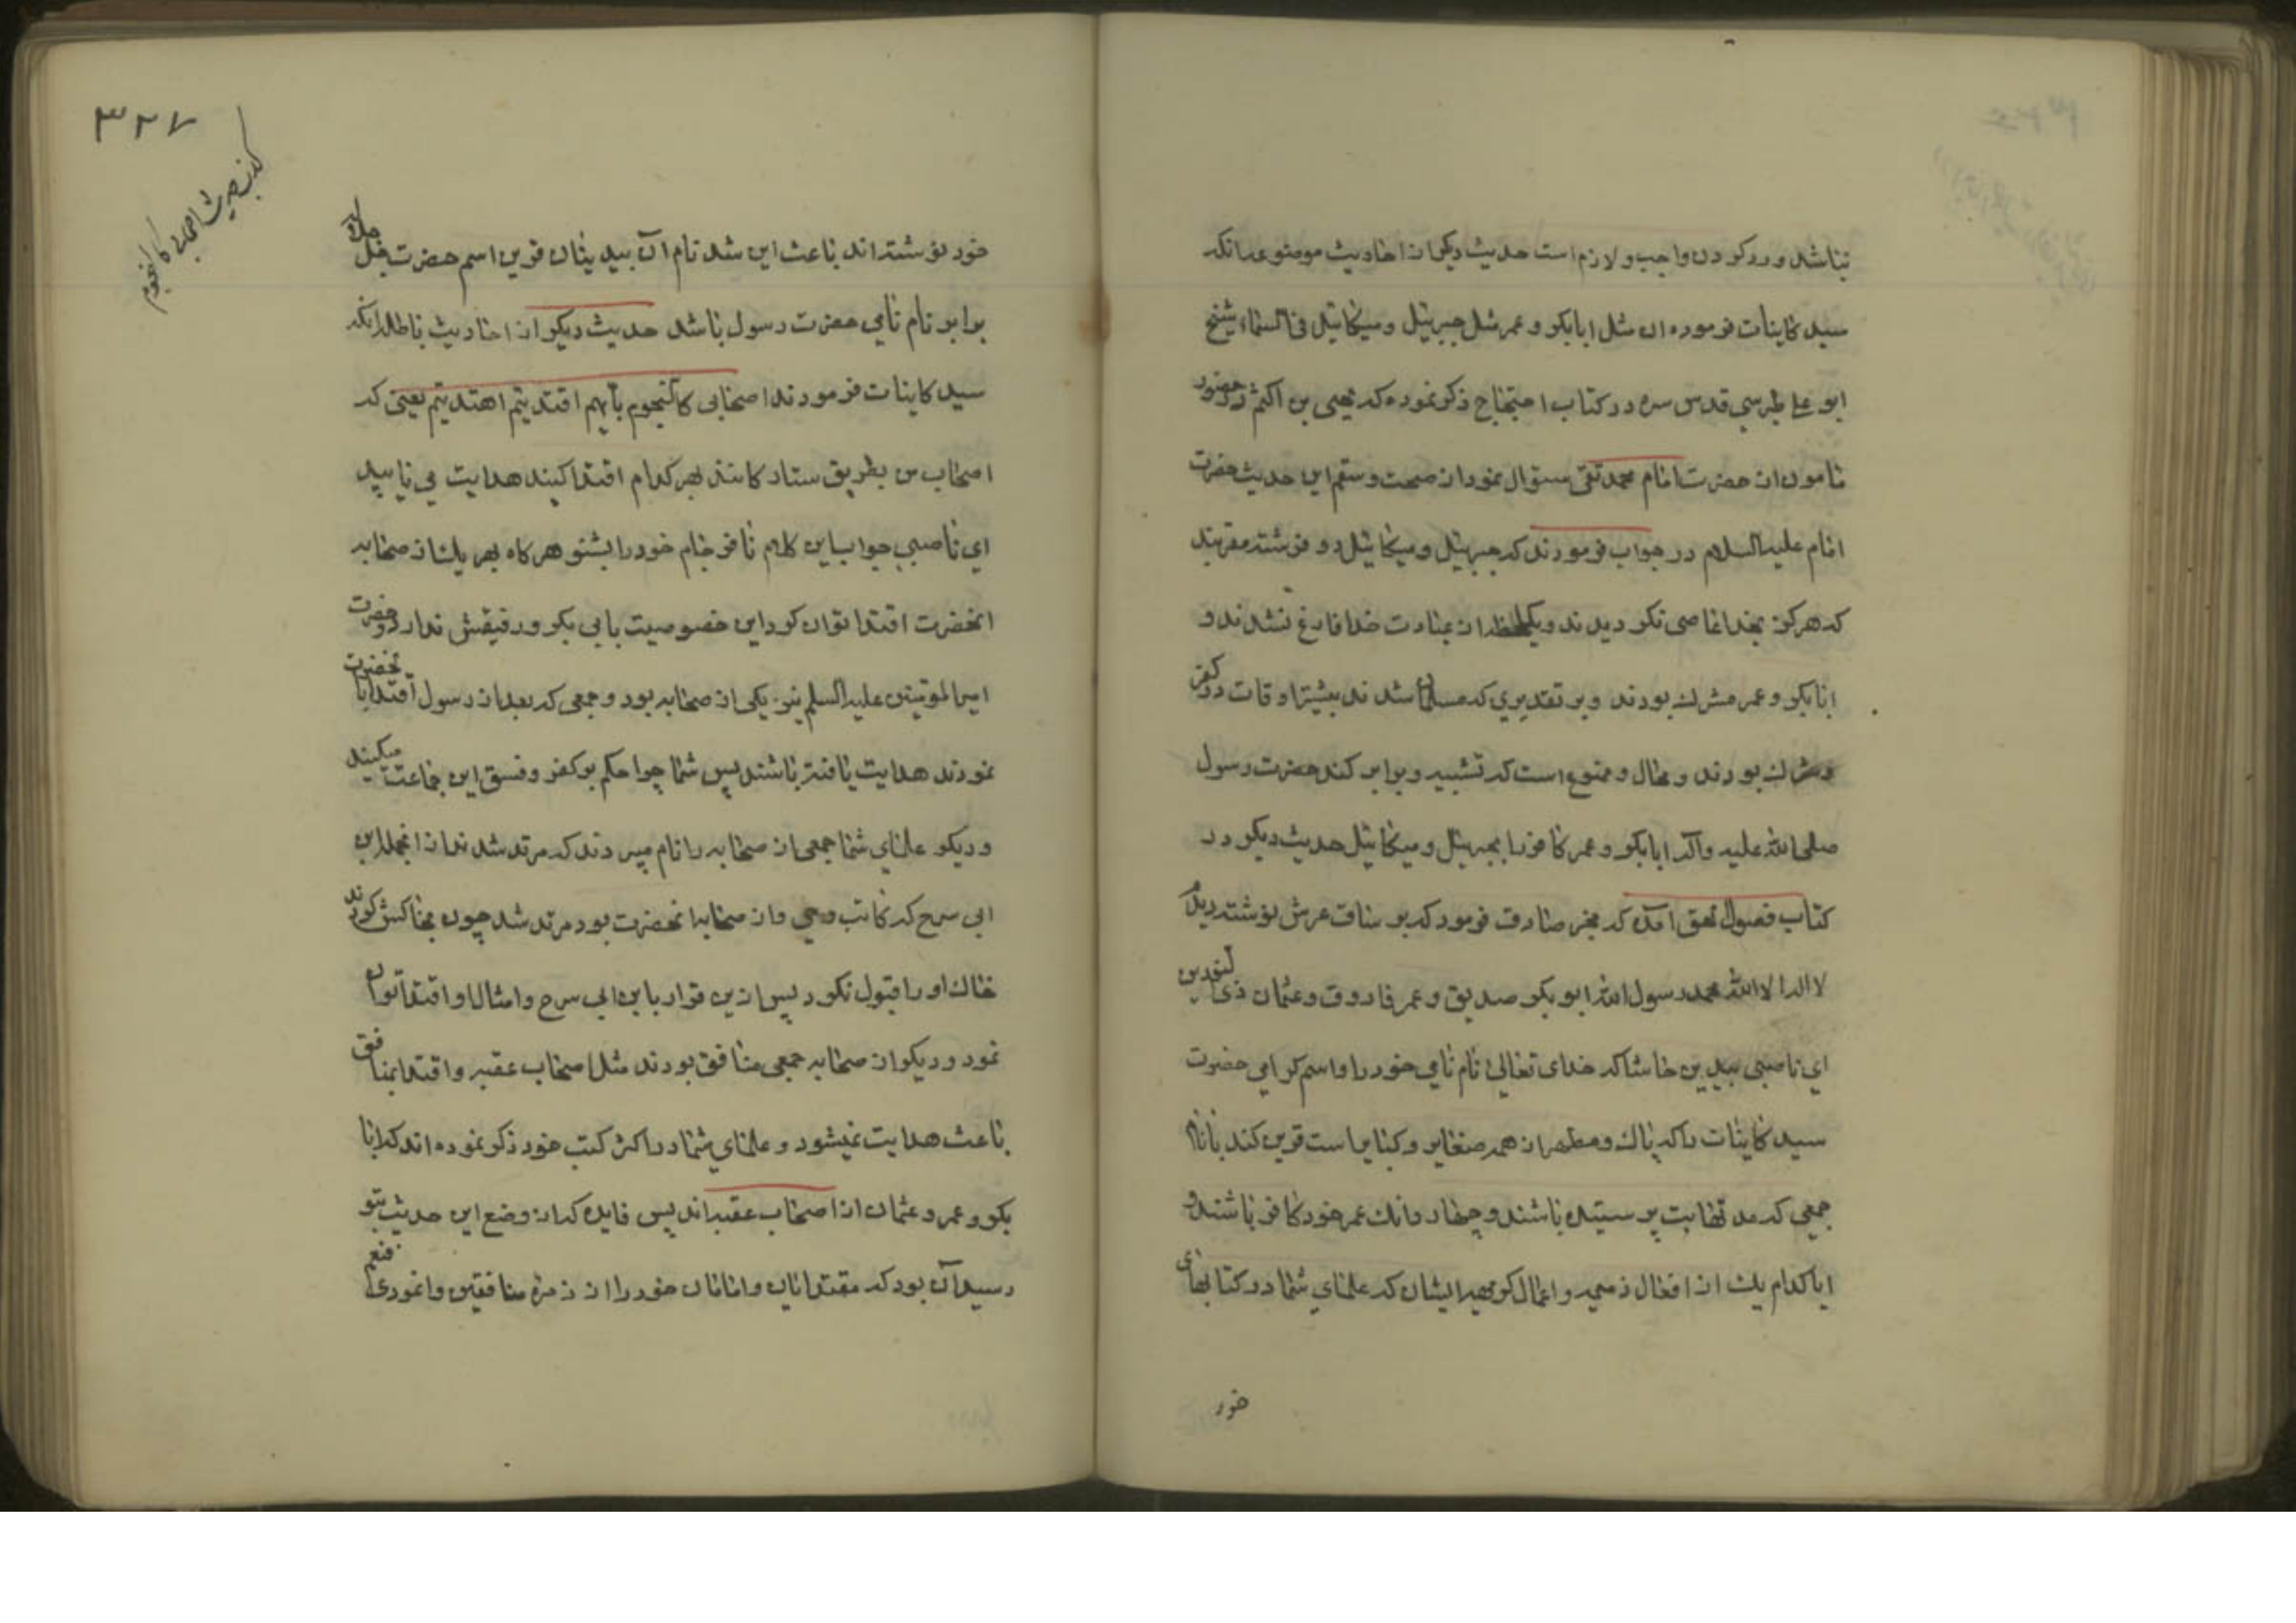 نباشد و رد کردن واجب و لازم است حدیث دیکر از احادیث موضوعه انکه
سید کاینات فرموده ان مثل ابابکر و عمر مثل جبرئیل و میکائیل فی السماء شیخ
ابو علی طبرسی قدس سره در کتاب احتجاج ذکر نموده که یحیی بن اکثم در حضور
مامون از حضرت امام محمد تقی سئوال نمود از صحت و سقم این حدیث حضرت
امام علیه السلام در جواب فرمودند که جبرئیل و میکائیل دو فرشته مقربند
که هرکز بخدا عاصی نکردیدند و یکلحظه از عبادت خدا فارغ نشدند و
ابابکر و عمر مشرک بودند و بر تقدیری که مسلمان شدند بیشتر اوقات در کفر
و شرک بودند و محال و ممنوع است که تشبیه و برابر کند حضرت رسول
صلی الله علیه و آله ابابکر و عمر کافر را بجبرئیل و میکائیل حدیث دیکر در
کتاب فصول بحق آمده که مخبر صادق فرمود که بر ساق عرش نوشته دیدم
لا اله الا الله محمد رسول الله ابو بکر صدیق و عمر فاروق و عثمان ذی النورین
ای ناصبی بیدین حاشا که خدای تعالی نام نامی خود را و اسم کرامی حضرت
سید کاینات را که پاک و مطهر از همه صغایر و کبایر است قرین کند بانام
جمعی که مدتها بت پرستیده باشند و چهار دانک عمر خود کافر باشند و
ایا کدام یک از افعال ذمیمه و اعمال کریهه ایشان که علمای شما در کتابهای
خود
۳۲۷
کذب حدیث اصحابی کالنجوم
خود نوشته اند باعث این شد نام آن بیدینان قرین اسم حضرت جل جلاله
برابر نام نامی حضرت رسول باشد حدیث دیکر از احادیث باطله انکه
سید کاینات فرمودند اصحابی کالنجوم بایهم اقتدیتم اهتدیتم یعنی که
اصحاب من بطریق ستاره کانند بهر کدام اقتدا کنید هدایت می یابید
ای ناصبی جواب این کلام نافرجام خود را بشنو هر کاه بهر یک از صحابه
انحضرت اقتدا توان کرد این خصوصیت بابی بکر و رفیقش ندارد و حضرت
امیرالمؤمنین علیه السلم نیز یکی از صحابه بود و جمعی که بعد از رسول اقتدا بانحضرت
نمودند هدایت یافته باشند پس شما چرا حکم بر کفر و فسق این جماعت میکنید
و دیکر علمای شما جمعی از صحابه را نام میبرند که مرتد شدند از انجمله ابن
ابی سرح که کاتب وحی و از صحابه انحضرت بود مرتد شد چون بخاکش کردند
خاک او را قبول نکرد پس ازین قرار باین ابی سرح و امثال او اقتدا توان
نمود و دیکر از صحابه جمعی منافق بودند مثل اصحاب عقبه و اقتدا بمنافق
باعث هدایت نمیشود و علمای شما در اکثر کتب خود ذکر نموده اند که ابا
بکر و عمر و عثمان از اصحاب عقبه اند پس فایده که از وضع این حدیث بتو
رسید آن بود که مقتدایان و امامان خود را از زمره منافقین وانمودی فنعم